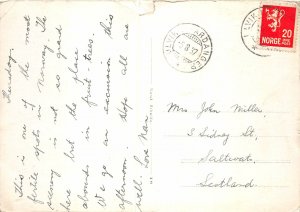 Thursday.
This is one of the most
fertile spots in Norway. The
scenery is not so grand
here but the place
abounds in fruit trees.
We go an excursion this
afternoon. Steps all are
well. Love Nan
Mrs John Miller,
3 Sidney St,
Saltcoats,
Scotland.
ALVIK
HARDANGER
NORGE
20